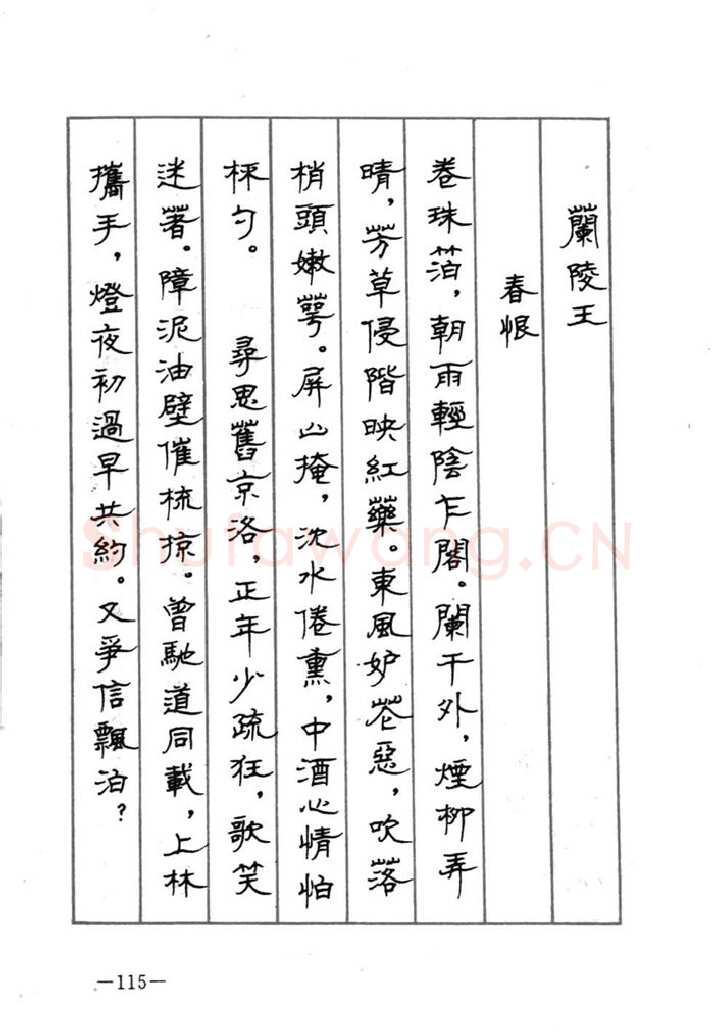 蘭陵王
春恨
卷珠箔，朝雨輕陰乍閣。闌干外，煙柳弄
晴，芳草侵階映紅藥。東風妒花惡，吹落
梢頭嫩萼。屏山掩，沈水倦熏，中酒心情怕
杯勺。　尋思舊京洛，正年少疏狂，歌笑
迷著。障泥油壁催梳掠。曾馳道同載，上林
攜手，燈夜初過早共約。又爭信飄泊？
Shufawang.CN
—115—